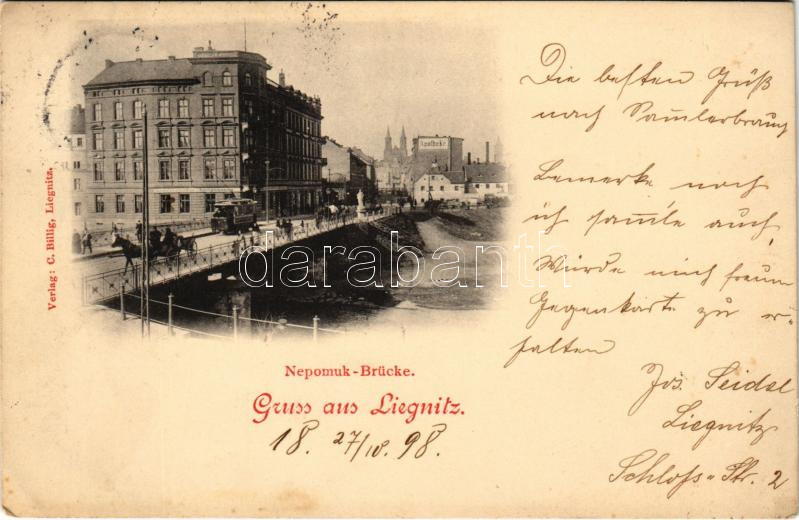 Die besten Grüß
nach Samlerbrauch
Bemerke noch
ich samle auch,
Würde mich freun
Gegenkarte zu er-
halten
Jos. Seidel
Liegnitz
Schloss-Str. 2
Apotheke
Verlag: C. Billig, Liegnitz.
darabanth
Nepomuk-Brücke.
Gruss aus Liegnitz.
18 27/IV. 98.